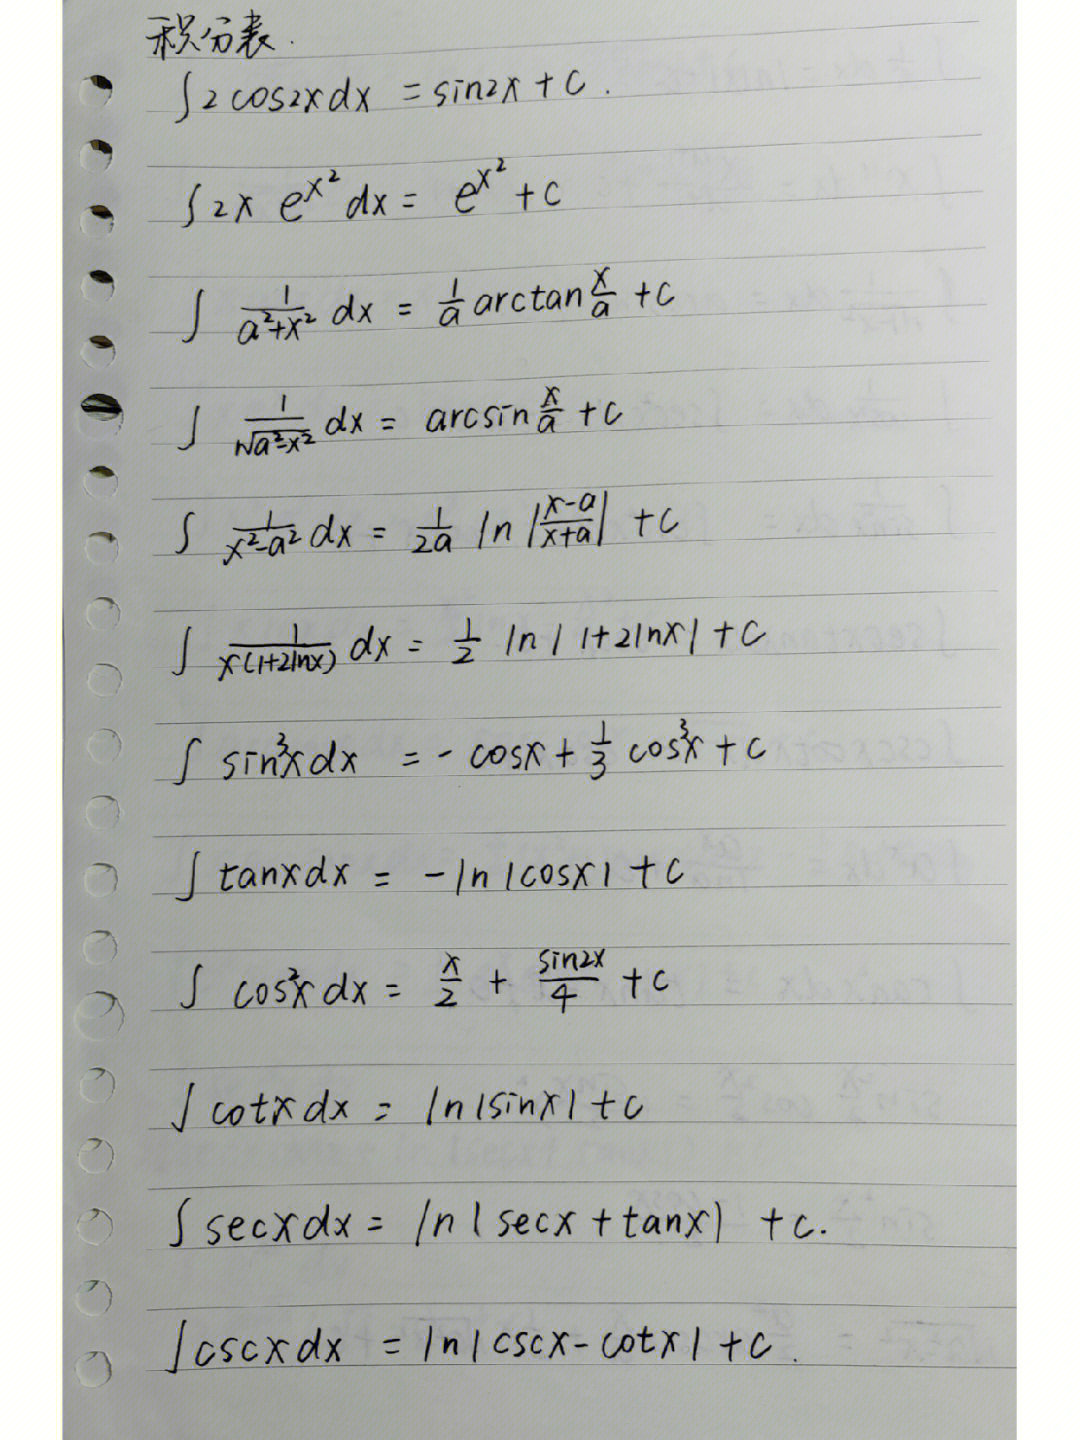 积分表.
∫2cos2xdx = sin2x + C.
∫2x e^{x^2} dx = e^{x^2} + C
∫ \frac{1}{a^2+x^2} dx = \frac{1}{a} arctan\frac{x}{a} + C
∫ \frac{1}{\sqrt{a^2-x^2}} dx = arcsin\frac{x}{a} + C
∫ \frac{1}{x^2-a^2} dx = \frac{1}{2a} ln|\frac{x-a}{x+a}| + C
∫ \frac{1}{x(1+2lnx)} dx = \frac{1}{2} ln|1+2lnx| + C
∫ sin^3x dx = -cosx + \frac{1}{3} cos^3x + C
∫ tanxdx = -ln|cosx| + C
∫ cos^2x dx = \frac{x}{2} + \frac{sin2x}{4} + C
∫ cotxdx = ln|sinx| + C
∫ secxdx = ln|secx + tanx| + C.
∫ cscxdx = ln|cscx - cotx| + C.